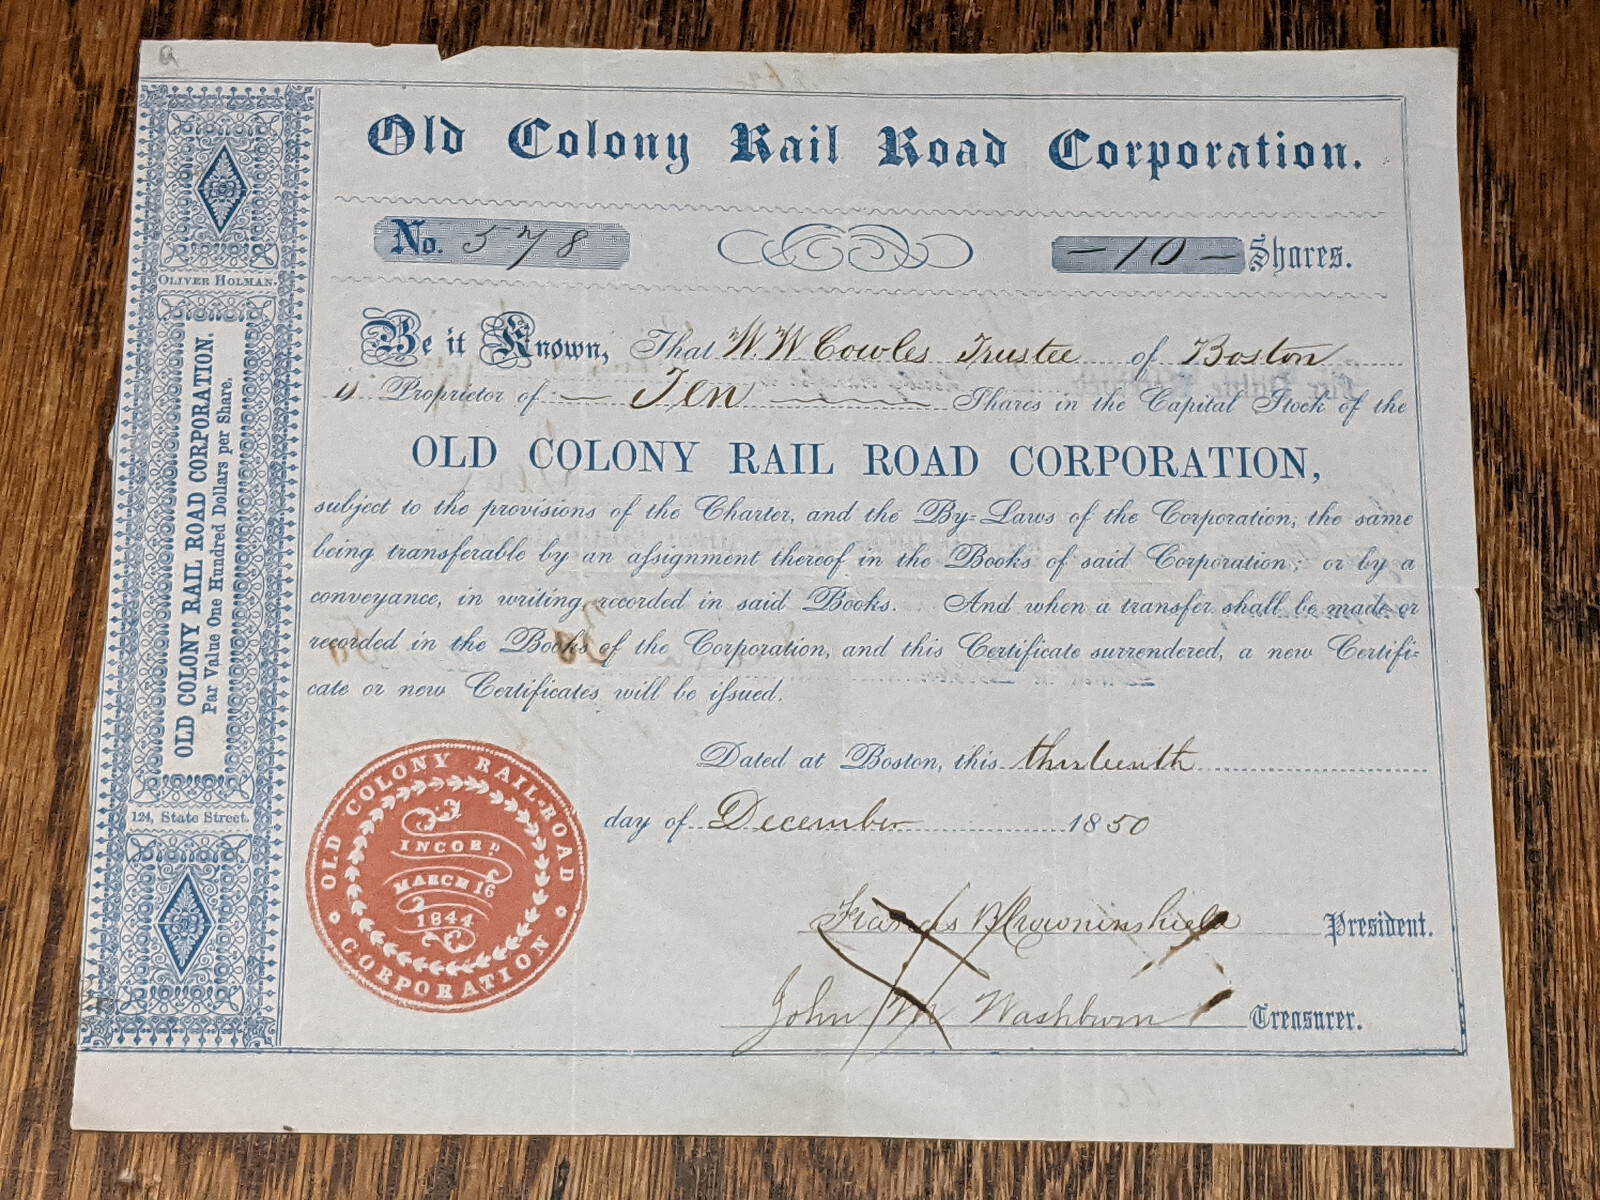 Old Colony Rail Road Corporation.
No. 578 – 10 – Shares.
Be it Known, That W. W Cowles Trustee of Boston
is Proprietor of Ten Shares in the Capital Stock of the
OLD COLONY RAIL ROAD CORPORATION,
subject to the provisions of the Charter, and the By-Laws of the Corporation; the same
being transferable by an assignment thereof in the Books of said Corporation; or by a
conveyance, in writing, recorded in said Books. And when a transfer shall be made or
recorded in the Books of the Corporation, and this Certificate surrendered, a new Certifi-
cate or new Certificates will be issued.
Dated at Boston, this thirteenth
day of December 1850
Francis B Crowninshield President.
John M Washburn Treasurer.
OLIVER HOLMAN.
OLD COLONY RAIL ROAD CORPORATION.
Par Value One Hundred Dollars per Share.
124, State Street.
OLD COLONY RAIL-ROAD
CORPORATION
INCORP.D
MARCH 16
1844